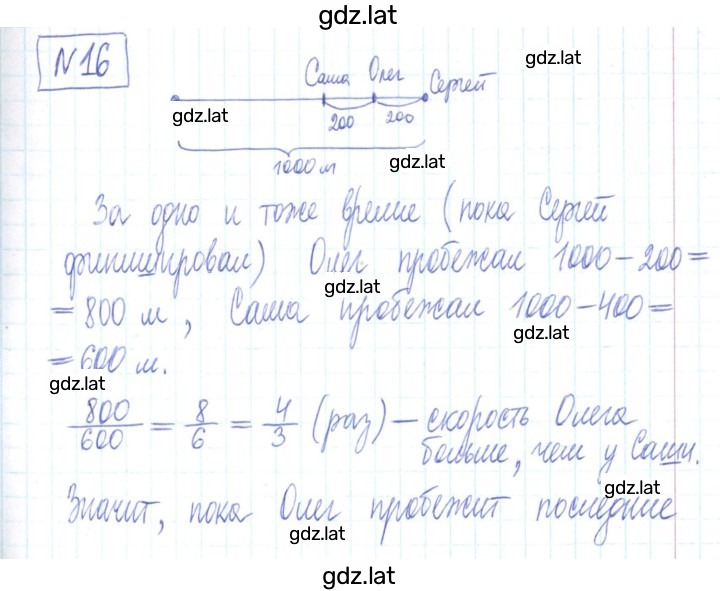 gdz.lat
№16
gdz.lat
Саша Олег Сергей
gdz.lat
200 200
gdz.lat
1000 м
За одно и тоже время (пока Сергей
финишировал) Олег пробежал 1000 – 200 =
gdz.lat
= 800 м, Саша пробежал 1000 – 400 =
gdz.lat
= 600 м.
gdz.lat
800/600 = 8/6 = 4/3 (раз) – скорость Олега
больше, чем у Саши.
gdz.lat
Значит, пока Олег пробежит последние
gdz.lat
gdz.lat